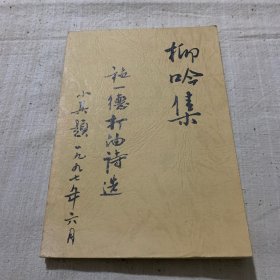 柳吟集
施一德打油诗选
小兵题一九九七年六月